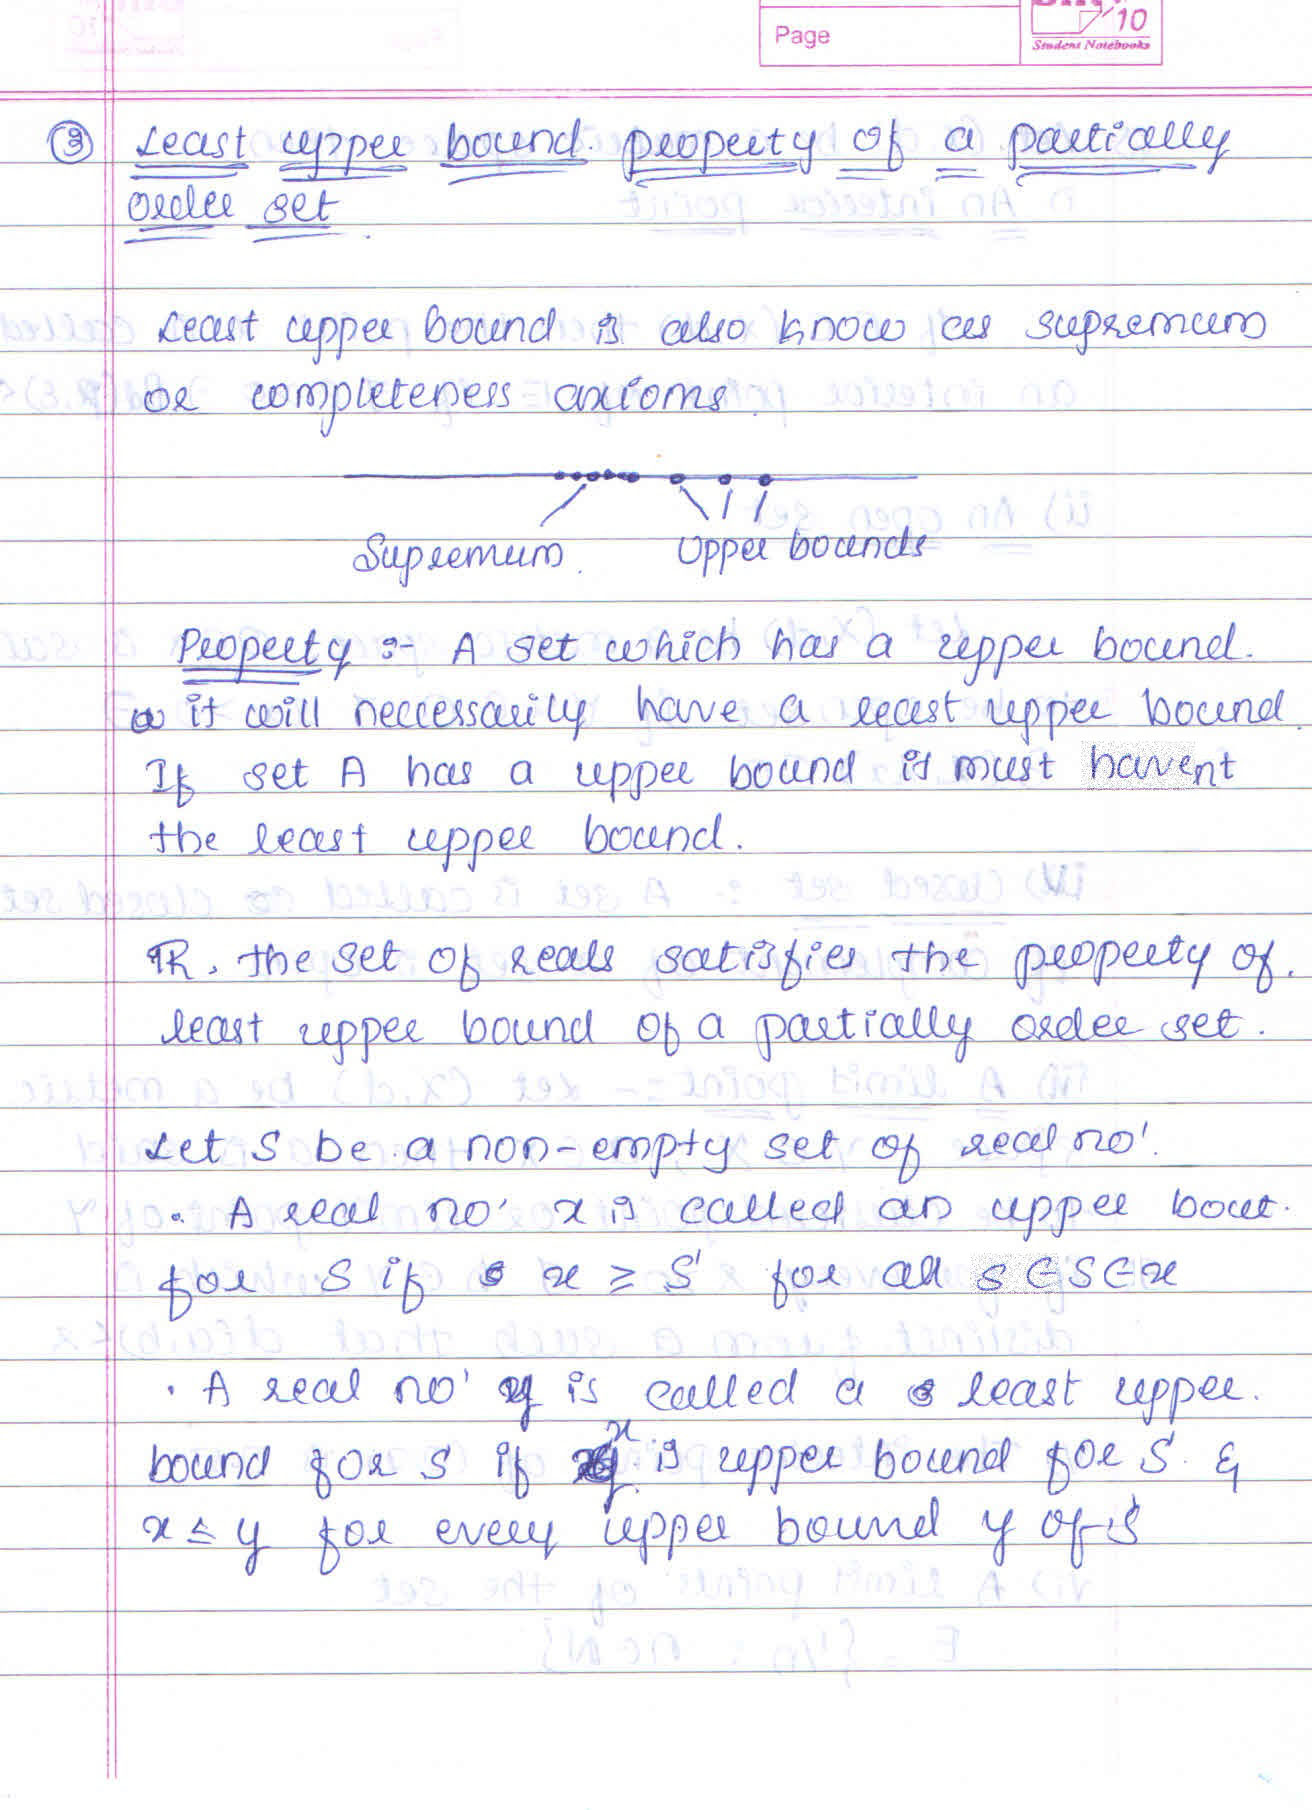 Page
10
Student Notebooks
③ Least upper bound property of a partially
order set
Least upper bound is also know as supremum
or completeness axioms.
Supremum. Upper bounds
Property :- A set which has a upper bound.
it will neccessarily have a least upper bound.
If set A has a upper bound it must havent
the least upper bound.
R, the set of reals satisfies the property of.
least upper bound of a partially order set.
Let S be a non-empty set of real no'.
. A real no' x is called an upper bout.
for S if x ≥ S' for all s ∈ S ∈ x
. A real no' y is called a least upper.
bound for S if x is upper bound for S. &
x ≤ y for every upper bound y of S